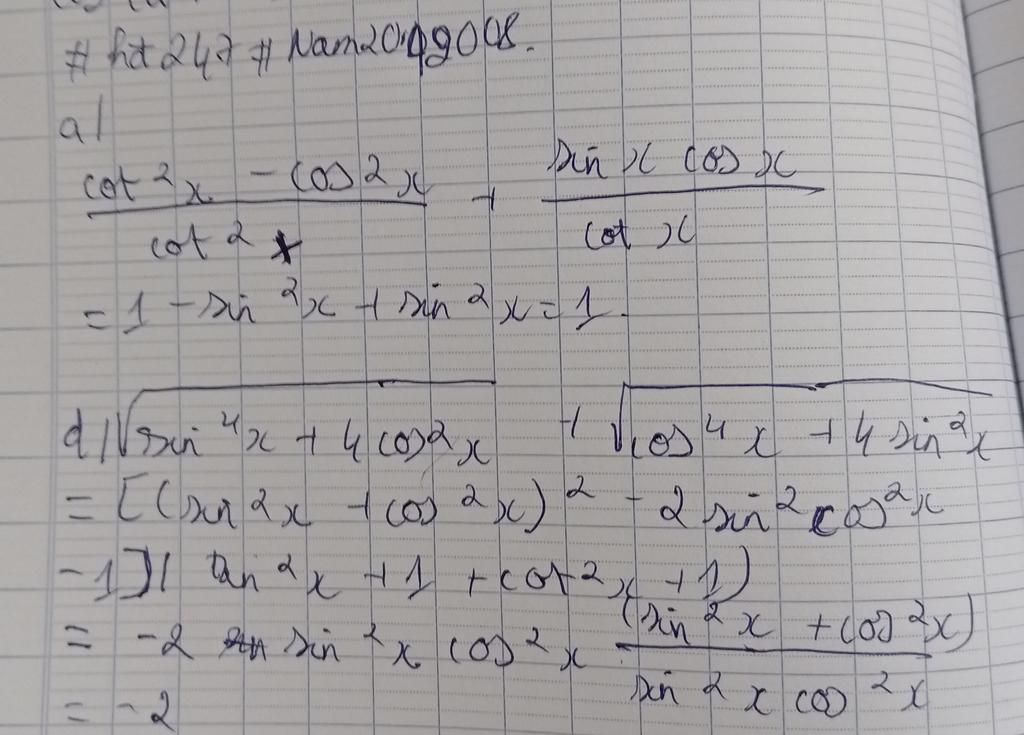 # ht 247 # Nam2049008.
a/
cot ²x - cos ²x / cot ² x + sin x cos x / cot x
= 1 - sin ²x + sin ²x = 1
d/ √sin ⁴x + 4 cos²x + √cos ⁴x + 4 sin²x
= [(sin ²x + cos ²x) ² - 2 sin ² cos²x
- 1] ( tan ²x + 1 + cot ²x + 1)
= -2 sin ²x cos ²x · (sin ²x + cos ²x) / sin ²x cos ²x
= -2